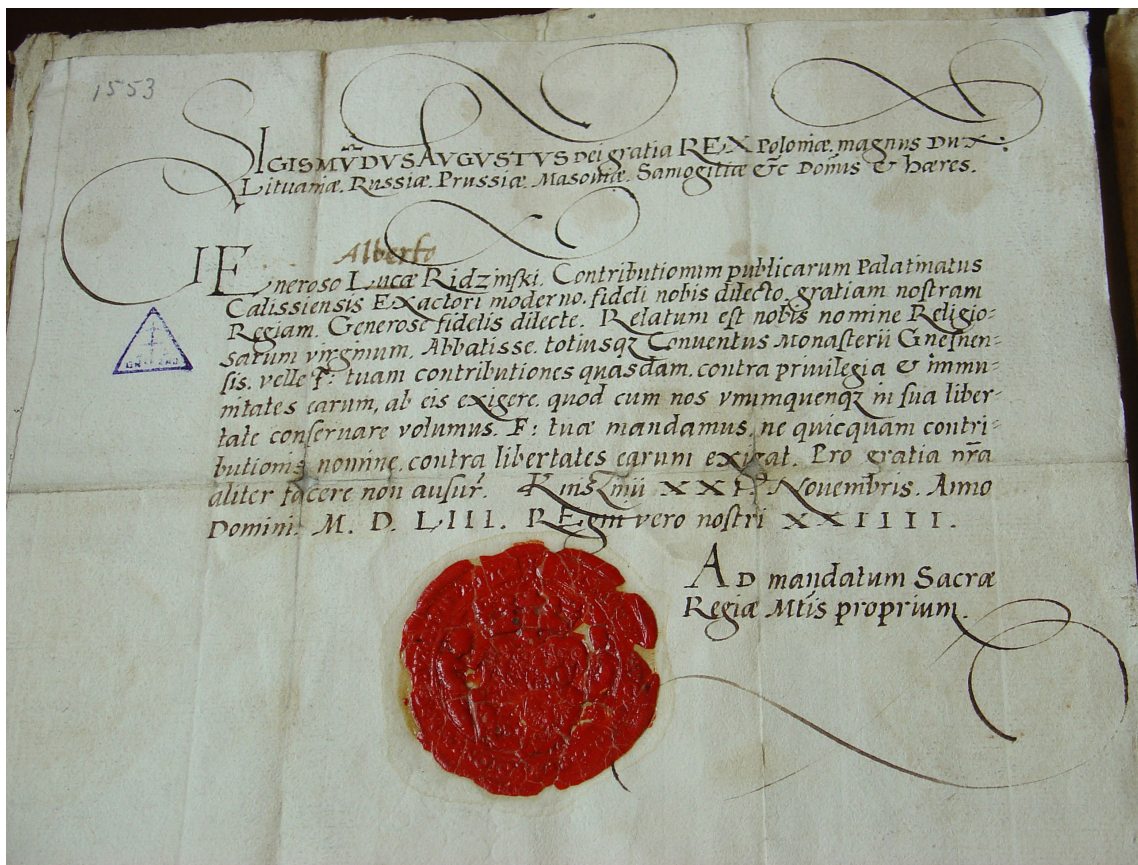 1553
SIGISMVDVS AVGVSTVS Dei gratia REX Poloniæ, magnus Dux
Lituaniæ, Russiæ, Prussiæ, Masouiæ, Samogitiæ &c Domus & hæres.
Alberto
GEneroso Lucæ Ridzinſki, Contributionum publicarum Palatinatus
Calissiensis EXactori moderno, fideli nobis dilecto, gratiam noſtram
Regiam. Generose fidelis dilecte. Relatum eſt nobis nomine Religio-
sarum virginum, Abbatisse, totiusqz Conuentus Monaſterii Gneſnen-
ſis, velle F: tuam contributiones quasdam, contra priuilegia & immu-
nitates earum, ab eis exigere, quod cum nos vnumquenqz in ſua liber-
tate conſeruare volumus. F: tuæ mandamus, ne quicquam contri-
butionis nomine, contra libertates earum exigat. Pro gratia nr̃a
aliter facere non auſur. XXI. Nouembris. Anno
Domini. M. D. LIII. REgni vero noſtri XXIIII.
AD mandatum Sacræ
Regiæ Mtis proprium.